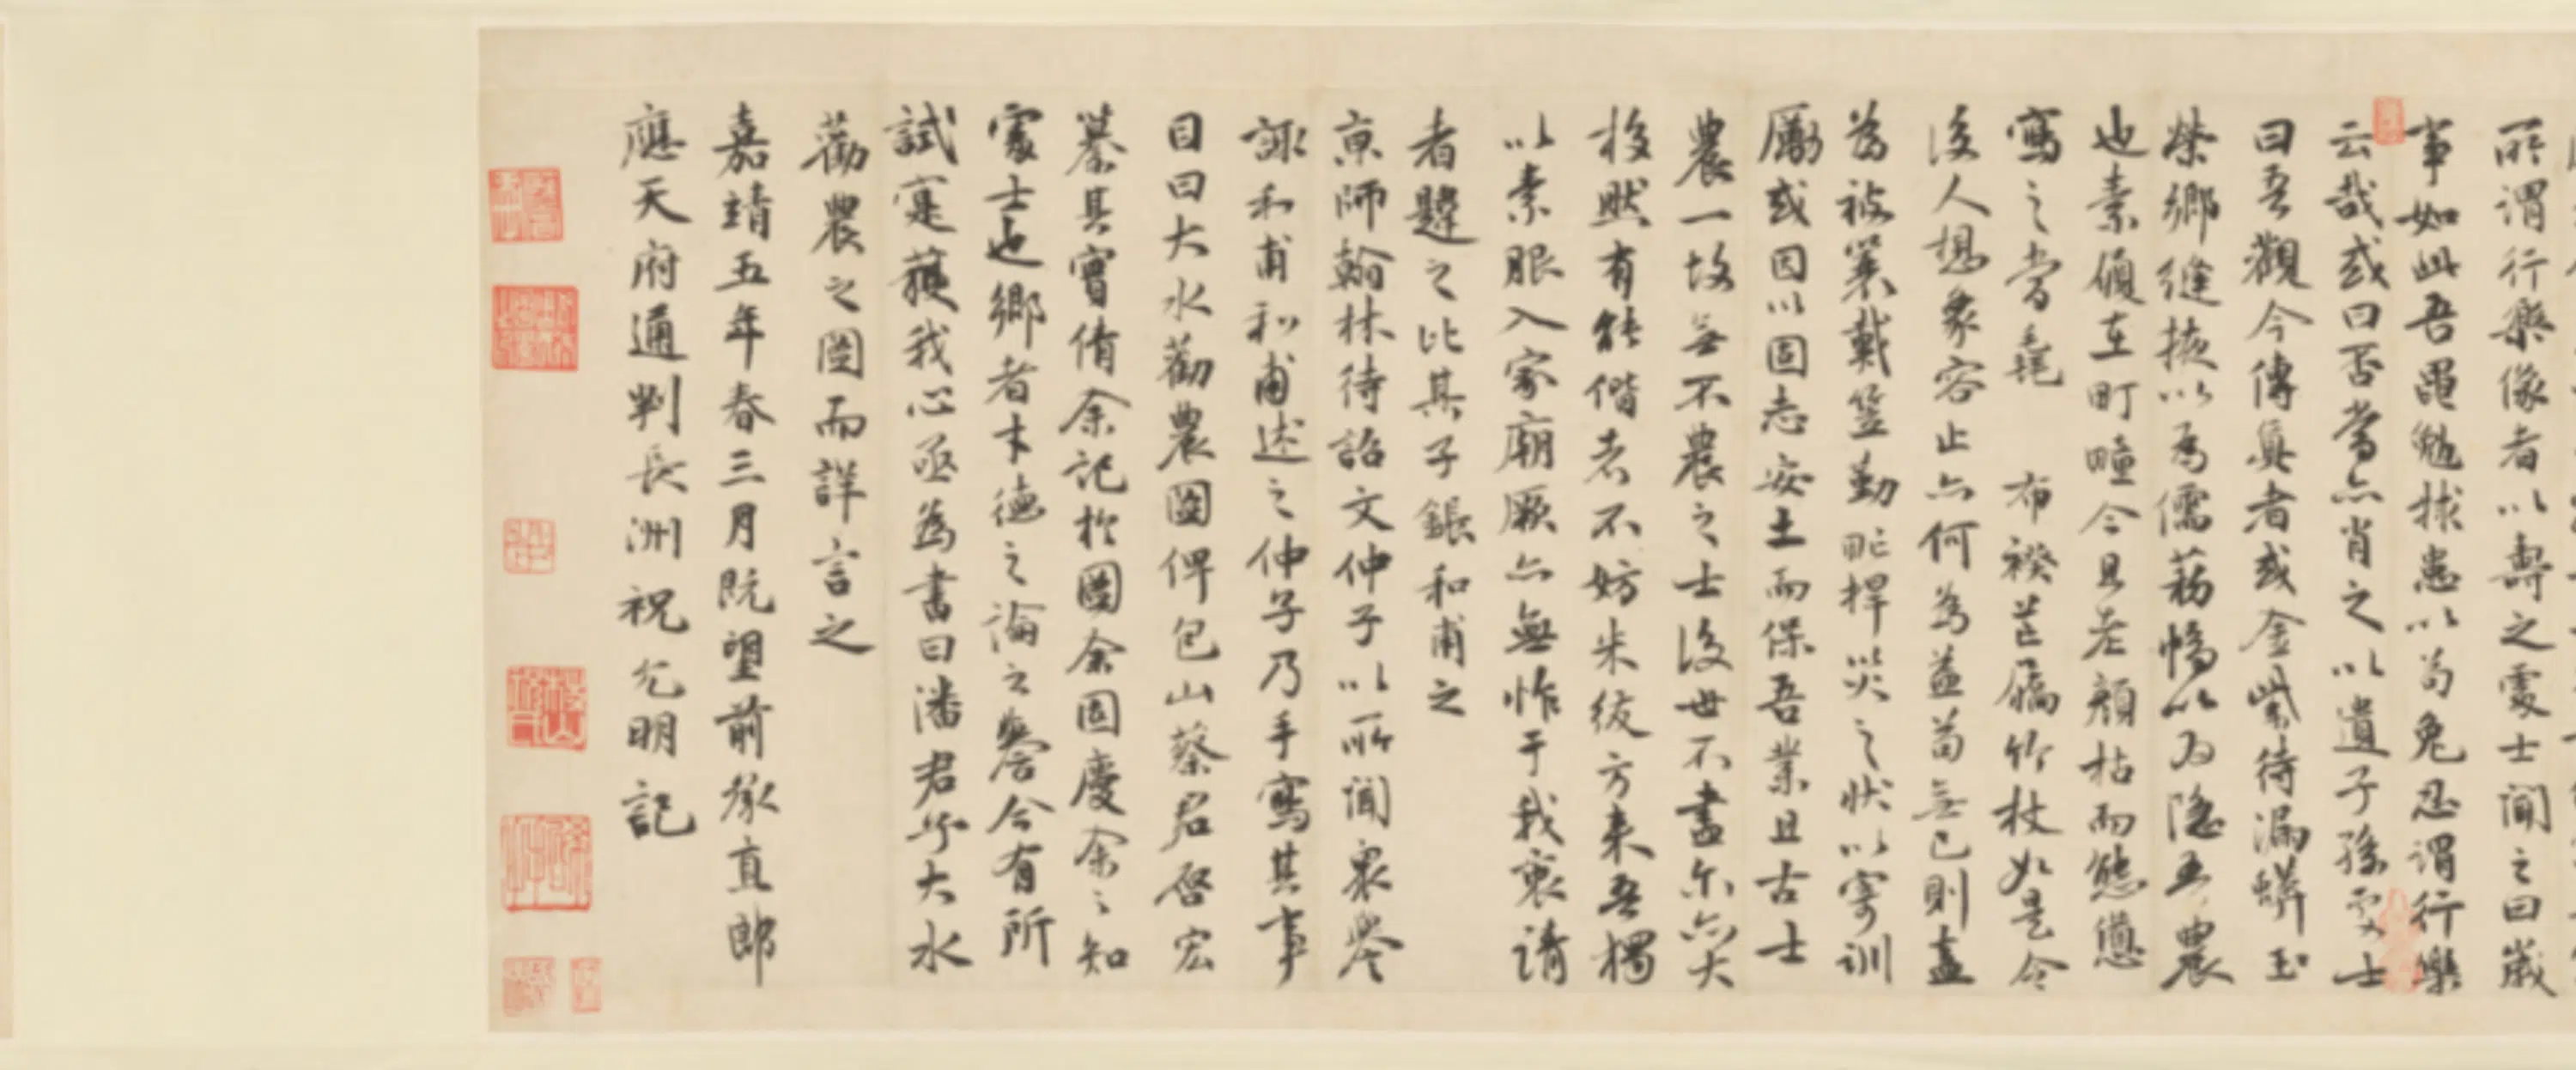 所謂行樂像者以壽之處士聞之曰歲
事如此吾黽勉捄患以苟免忍謂行樂
云哉或曰否當亦肖之以遺子孫處士
曰吾觀今傳真者或金紫待漏蟒玉
榮鄉縫掖以為儒藜幅以為隱吾農
也素願在町畽今且老顏枯而態憊
寫之當毳布襏芒屩竹杖如是令
後人想象容止亦何為益苟無已則盍
為被蓑戴笠勤甿捍災之狀以寄訓
厲或因以固志安土而保吾業且古士
農一故無不農之士後世不盡爾亦大
校然有能偕者不妨朱紱方來吾獨
以素服入家廟厥亦無怍于我衷請
者韙之比其子鋹和甫之
京師翰林待詔文仲子以所聞衆譽
諏和甫和甫述之仲子乃手寫其事
目曰大水勸農圖俾包山蔡君啓宏
纂其實倩余記於圖余固慶余之知
處士也鄉者才德之論之譽今有所
試寔獲我心亟為書曰潘君乎大水
勸農之圖而詳言之
嘉靖五年春三月既望前承直郎
應天府通判長洲祝允明記